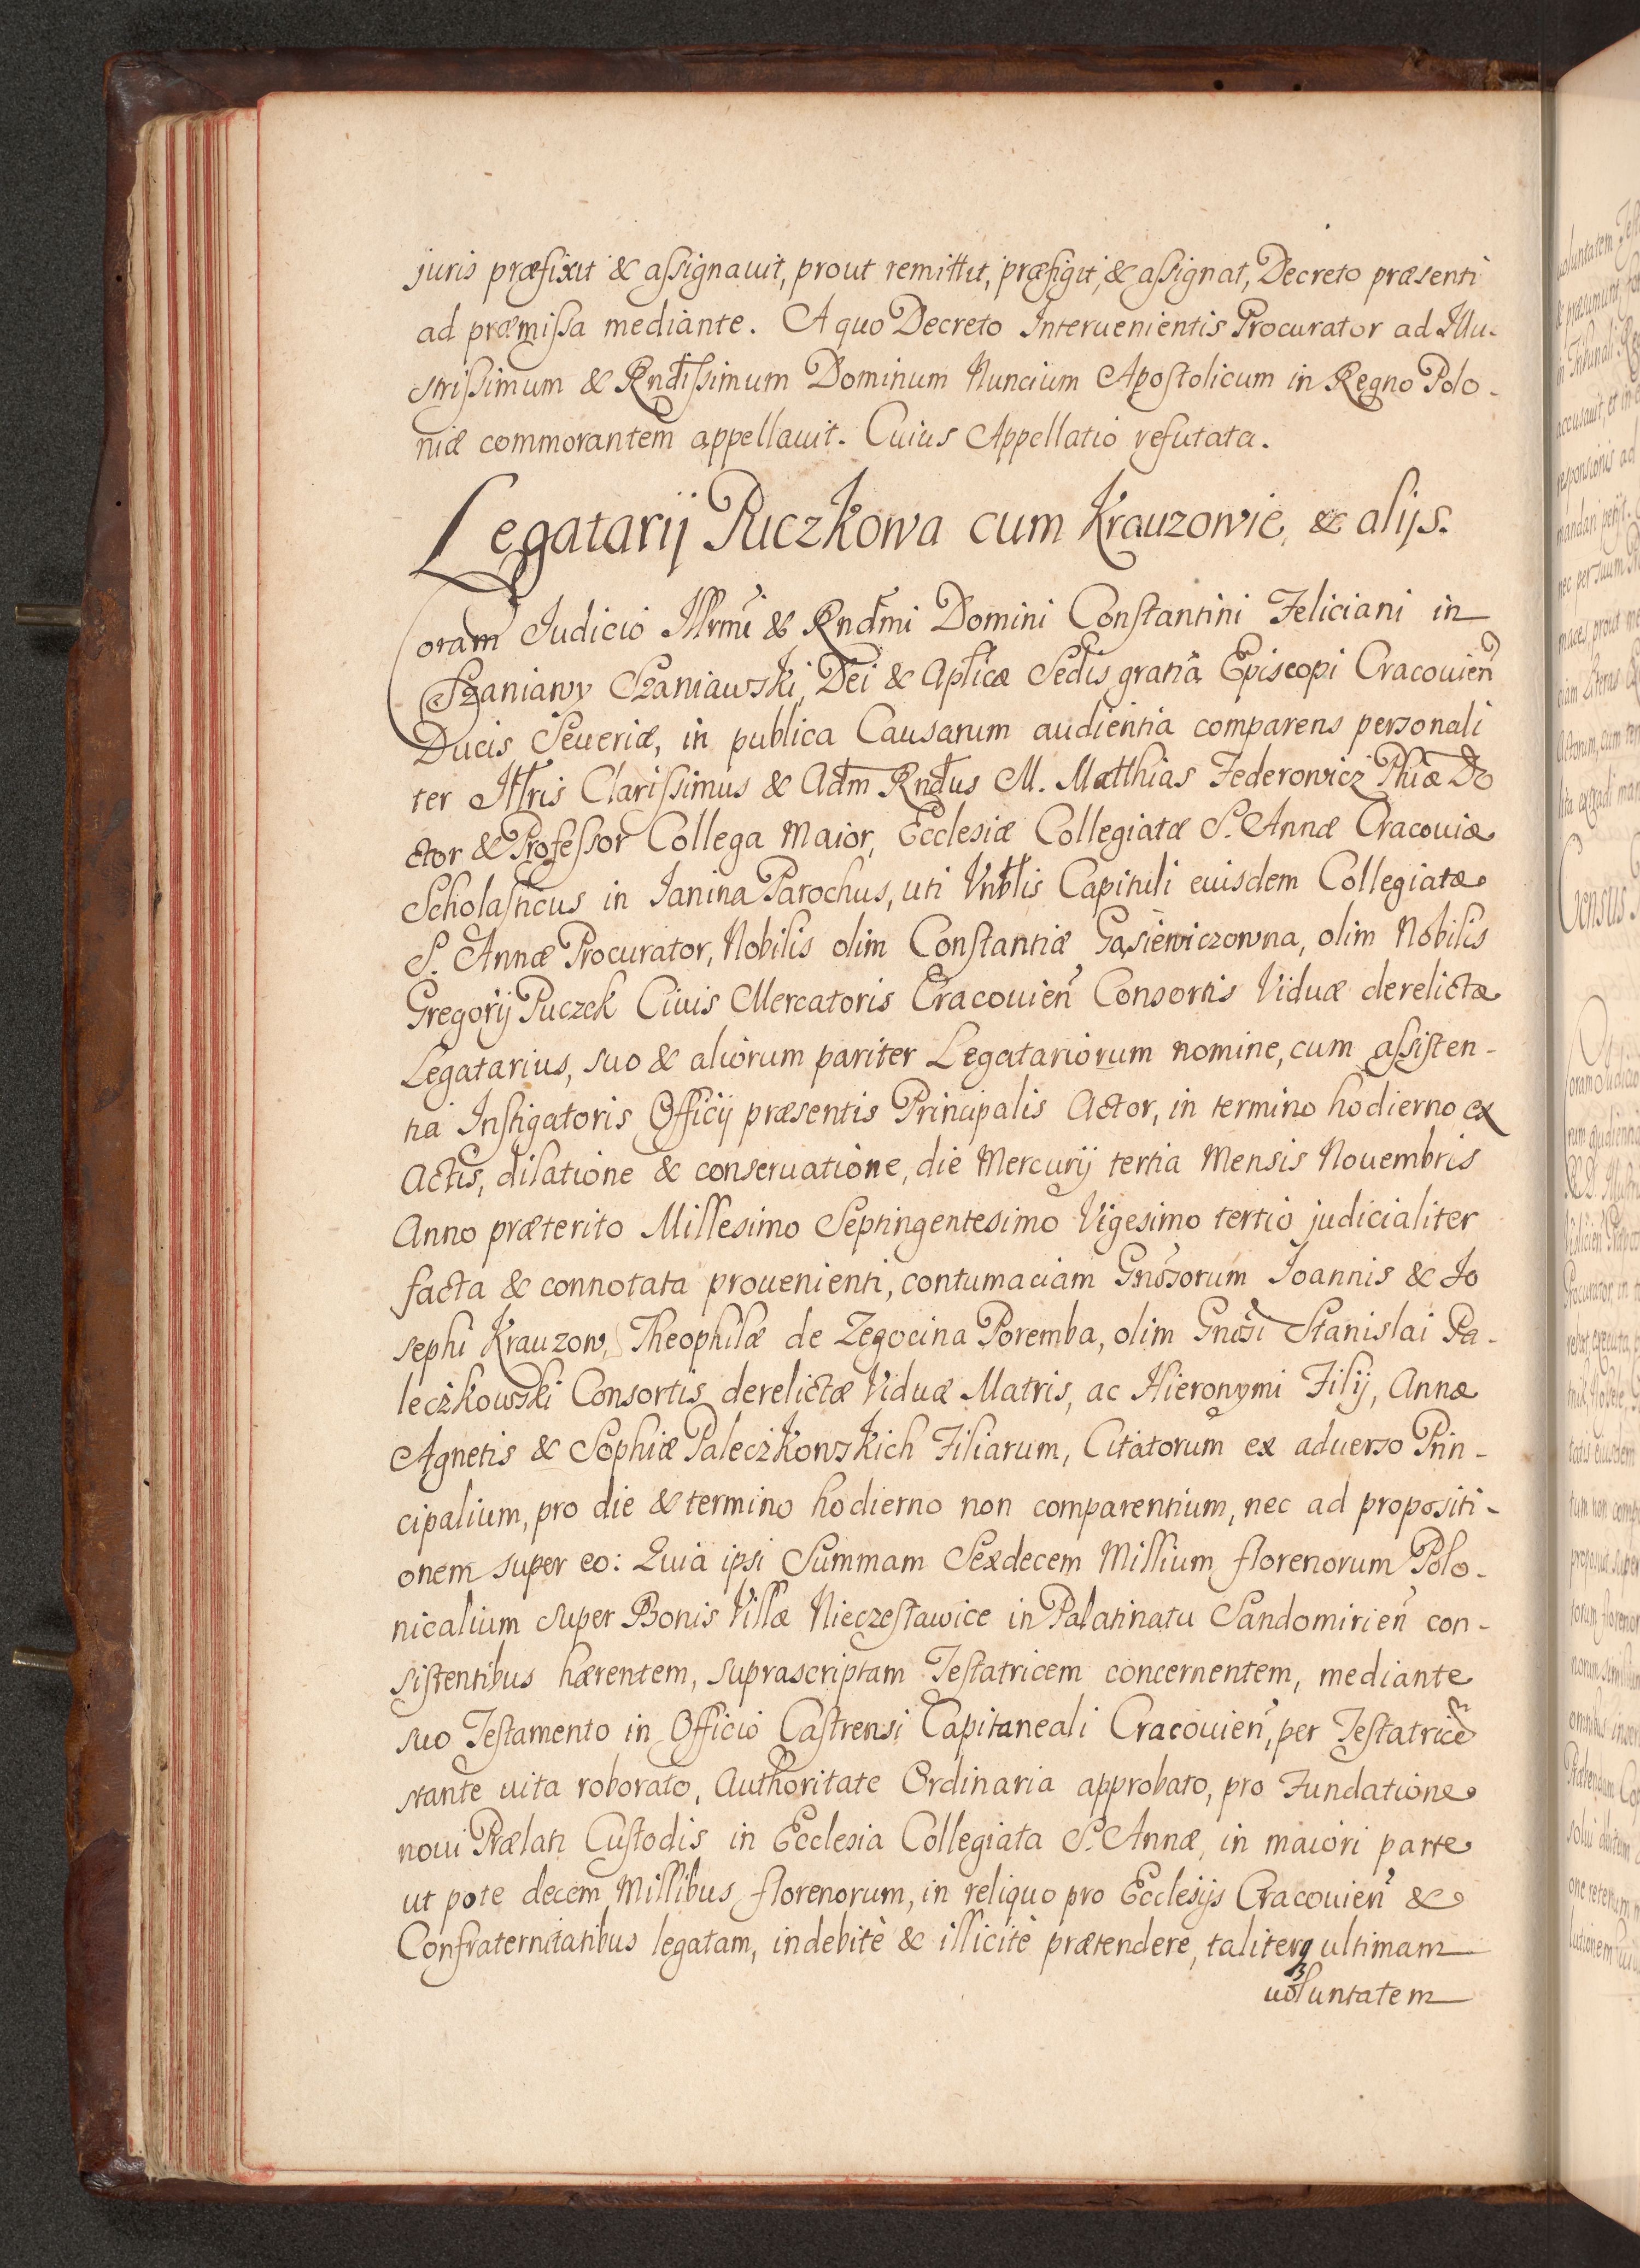 juris præfixit & assignauit, prout remittit, præfigit, & assignat, Decreto præsenti
ad præmissa mediante. A quo Decreto Interuenientis Procurator ad Illu-
strissimum & Rndissimum Dominum Nuncium Apostolicum in Regno Polo-
niæ commorantem appellauit. Cuius Appellatio refutata.
Legatarij Puczkowa cum Krauzowie, & alijs.
Coram Judicio Illrmi & Rndmi Domini Constantini Feliciani in
Szaniawy Szaniawski, Dei & Aplicæ Sedis gratia Episcopi Cracouien
Ducis Seueriæ, in publica Causarum audientia comparens personali
ter Illris Clarissimus & Adm Rndus M. Matthias Federowicz Phiæ Do
ctor & Professor Collega Maior, Ecclesiæ Collegiatæ S. Annæ Cracouiæ
Scholasticus in Janina Parochus, uti Vnblis Capituli euisdem Collegiatæ
S. Annæ Procurator, Nobilis olim Constantiæ Gąsiewiczowna, olim Nobilis
Gregorij Puczek Ciuis Mercatoris Cracouien Consortis Viduæ derelictæ
Legatarius, suo & aliorum pariter Legatariorum nomine, cum assisten-
tia Instigatoris Officij præsentis Principalis Actor, in termino hodierno ex
Actis, dilatione & conseruatione, die Mercurij tertia Mensis Nouembris
Anno præterito Millesimo Septingentesimo Vigesimo tertio judicialiter
facta & connotata prouenienti, contumaciam Gnosorum Joannis & Jo
sephi Krauzow, Theophilæ de Zegocina Poremba, olim Gnosi Stanislai Pa-
leczkowski Consortis derelictæ Viduæ Matris, ac Hieronymi Filij, Annæ
Agnetis & Sophiæ Paleczkowskich Filiarum, Citatorum ex aduerso Prin-
cipalium, pro die & termino hodierno non comparentium, nec ad propositi-
onem super eo: Quia ipsi Summam Sexdecem Millium florenorum Polo-
nicalium super Bonis Villæ Nieczesławice in Palatinatu Sandomirien con-
sistentibus hærentem, suprascriptam Testatricem concernentem, mediante
suo Testamento in Officio Castrensi Capitaneali Cracouien, per Testatricem
stante uita roborato, Authoritate Ordinaria approbato, pro Fundatione
noui Prælati Custodis in Ecclesia Collegiata S. Annæ, in maiori parte
ut pote decem Millibus florenorum, in reliquo pro Ecclesijs Cracouien &
Confraternitatibus legatam, indebite & illicite prætendere, taliterq ultimam
uoluntatem